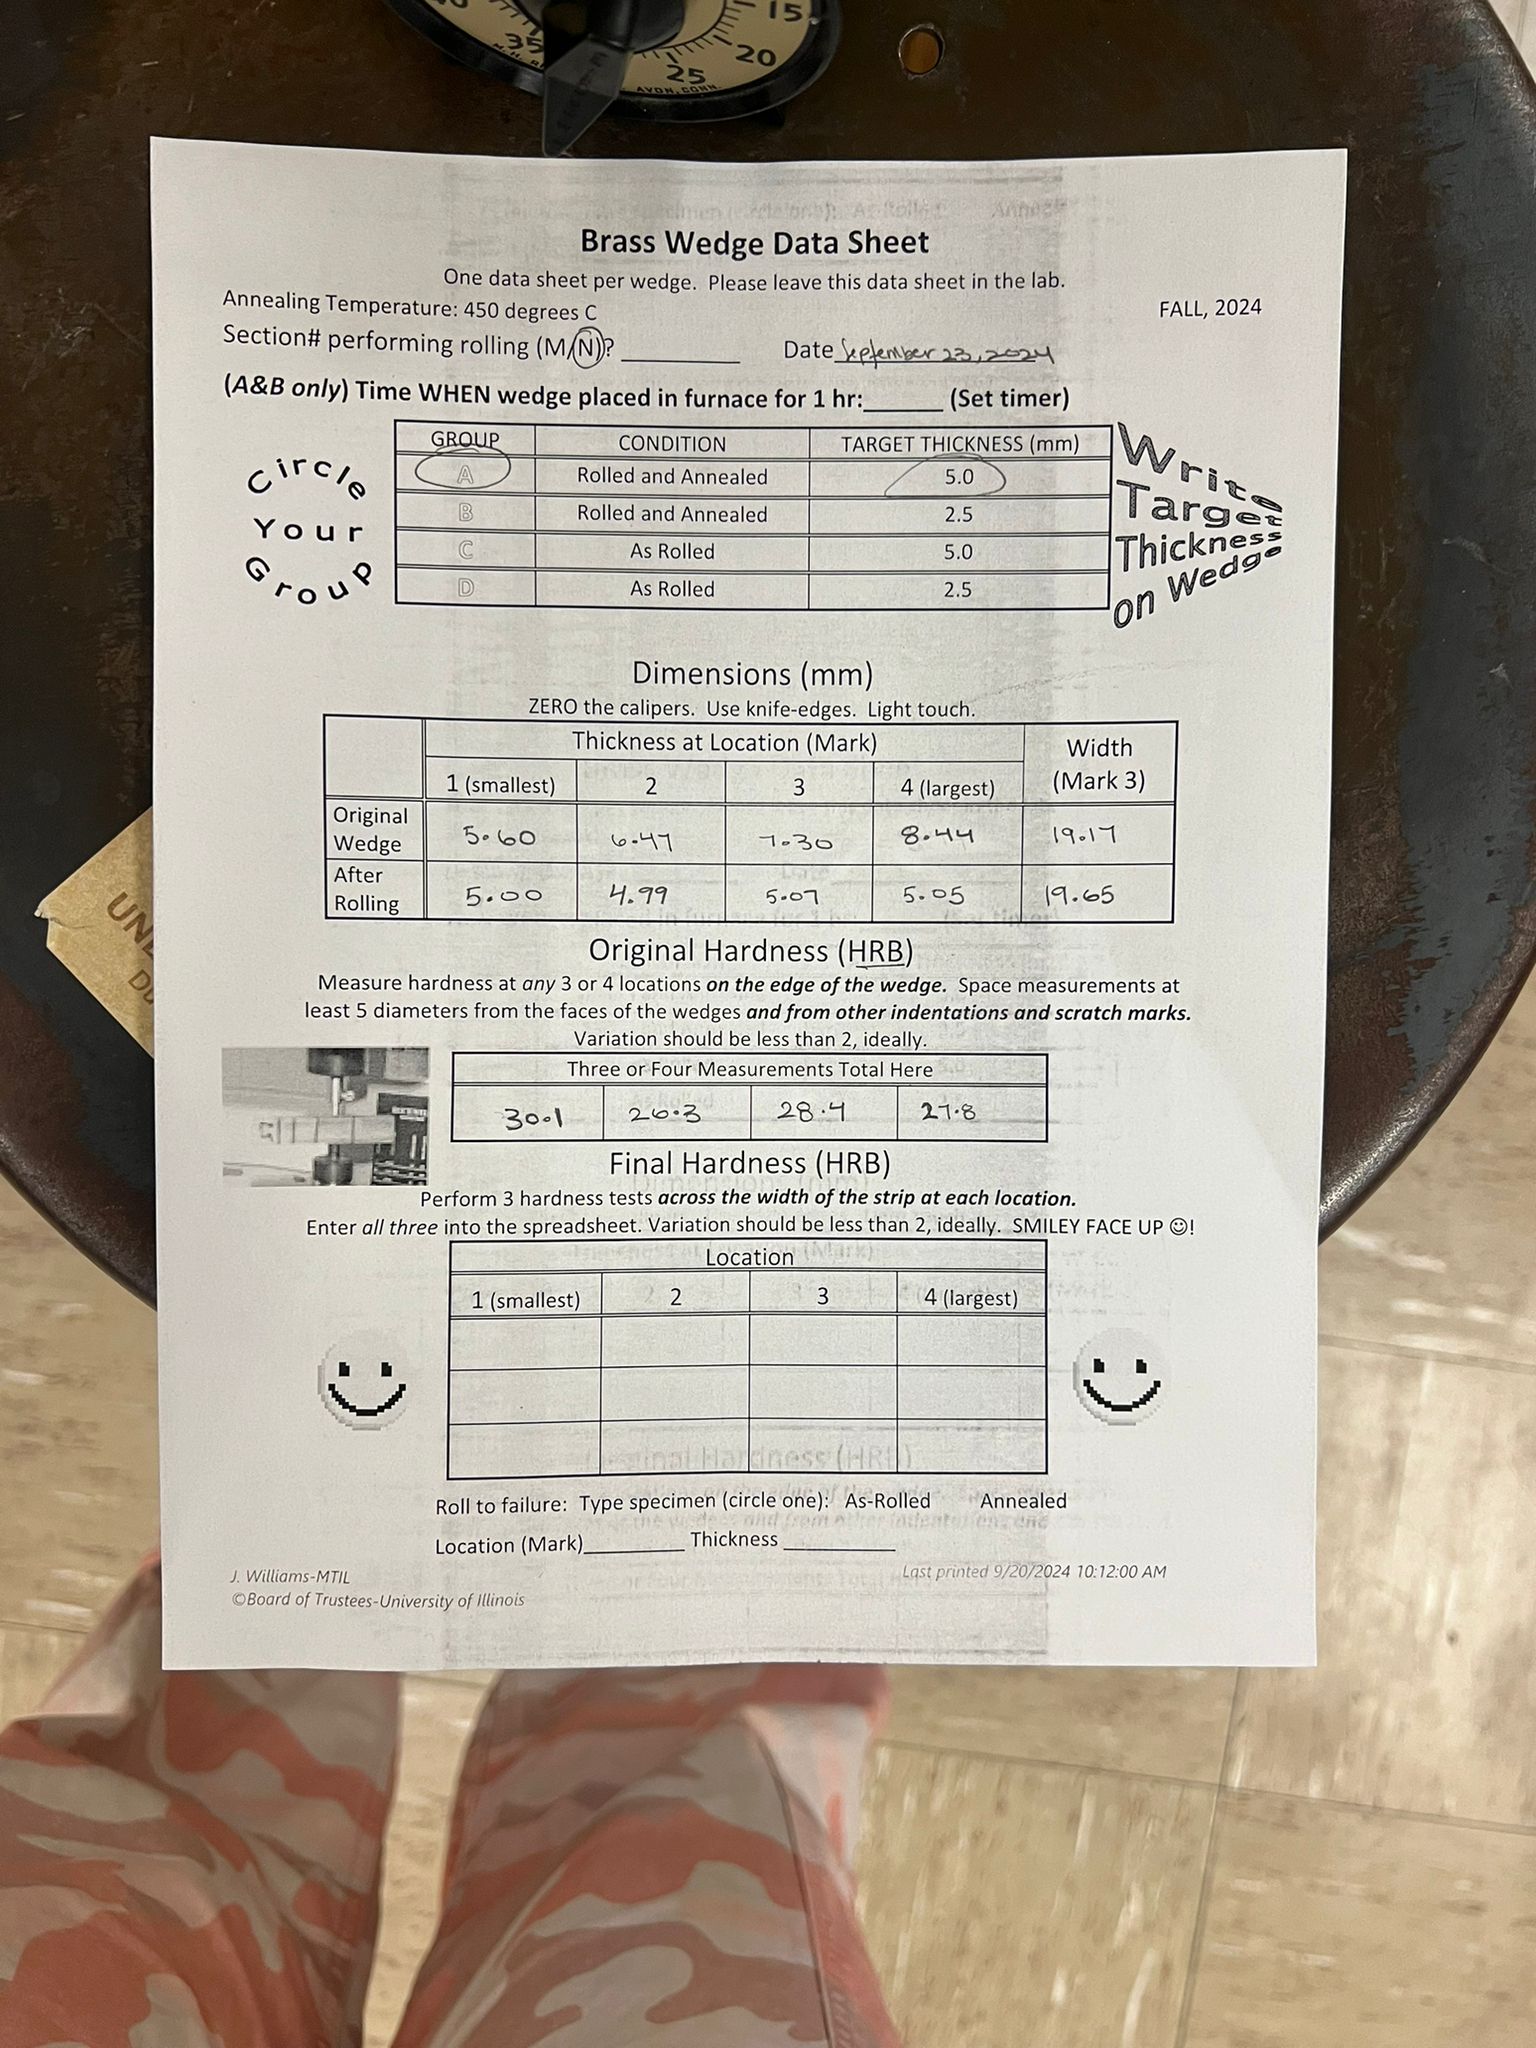 35
25
20
15
AVON, CONN.
Brass Wedge Data Sheet
One data sheet per wedge. Please leave this data sheet in the lab.
Annealing Temperature: 450 degrees C
FALL, 2024
Section# performing rolling (M/N)? __________ Date September 23, 2024
(A&B only) Time WHEN wedge placed in furnace for 1 hr:______ (Set timer)
Circle Your Group
GROUP CONDITION TARGET THICKNESS (mm)
A Rolled and Annealed 5.0
B Rolled and Annealed 2.5
C As Rolled 5.0
D As Rolled 2.5
Write Target Thickness on Wedge
Dimensions (mm)
ZERO the calipers. Use knife-edges. Light touch.
Thickness at Location (Mark) Width (Mark 3)
1 (smallest) 2 3 4 (largest)
Original Wedge 5.60 6.47 7.30 8.44 19.17
After Rolling 5.00 4.99 5.07 5.05 19.65
Original Hardness (HRB)
Measure hardness at any 3 or 4 locations on the edge of the wedge. Space measurements at
least 5 diameters from the faces of the wedges and from other indentations and scratch marks.
Variation should be less than 2, ideally.
Three or Four Measurements Total Here
30.1 26.3 28.4 27.8
Final Hardness (HRB)
Perform 3 hardness tests across the width of the strip at each location.
Enter all three into the spreadsheet. Variation should be less than 2, ideally. SMILEY FACE UP ☺!
Location
1 (smallest) 2 3 4 (largest)
Roll to failure: Type specimen (circle one): As-Rolled Annealed
Location (Mark)_________ Thickness __________
J. Williams-MTIL
Last printed 9/20/2024 10:12:00 AM
©Board of Trustees-University of Illinois